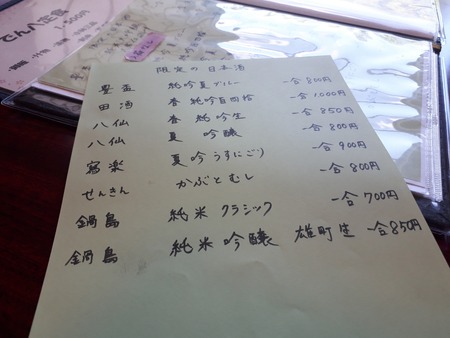 でん八定食
1,500円
限定の日本酒
豊盃 純吟夏ブルー 一合800円
田酒 香 純吟百四拾 一合1,000円
八仙 香 純吟生 一合850円
八仙 夏 吟醸 一合800円
寫楽 夏吟うすにごり 一合900円
せんきん かぶとむし 一合800円
鍋島 純米 クラシック 一合700円
鍋島 純米吟醸 雄町生 一合850円